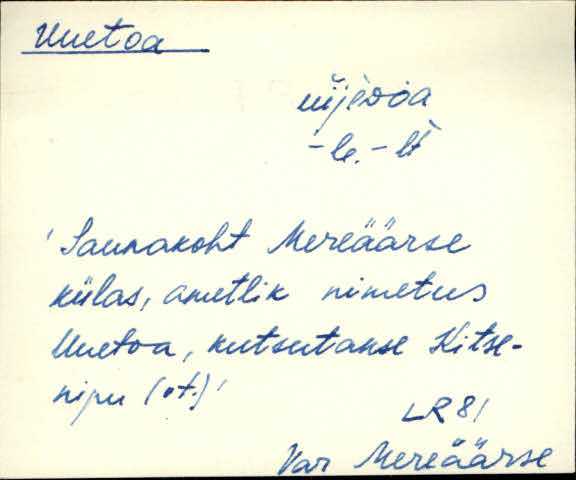 Uuetoa
-le, -lt
'Saunakoht Mereäärse
külas, ametlik nimetus
Uuetoa, kutsutakse Kitse-
nipu (vt.)'
LR 81
Var Mereäärse